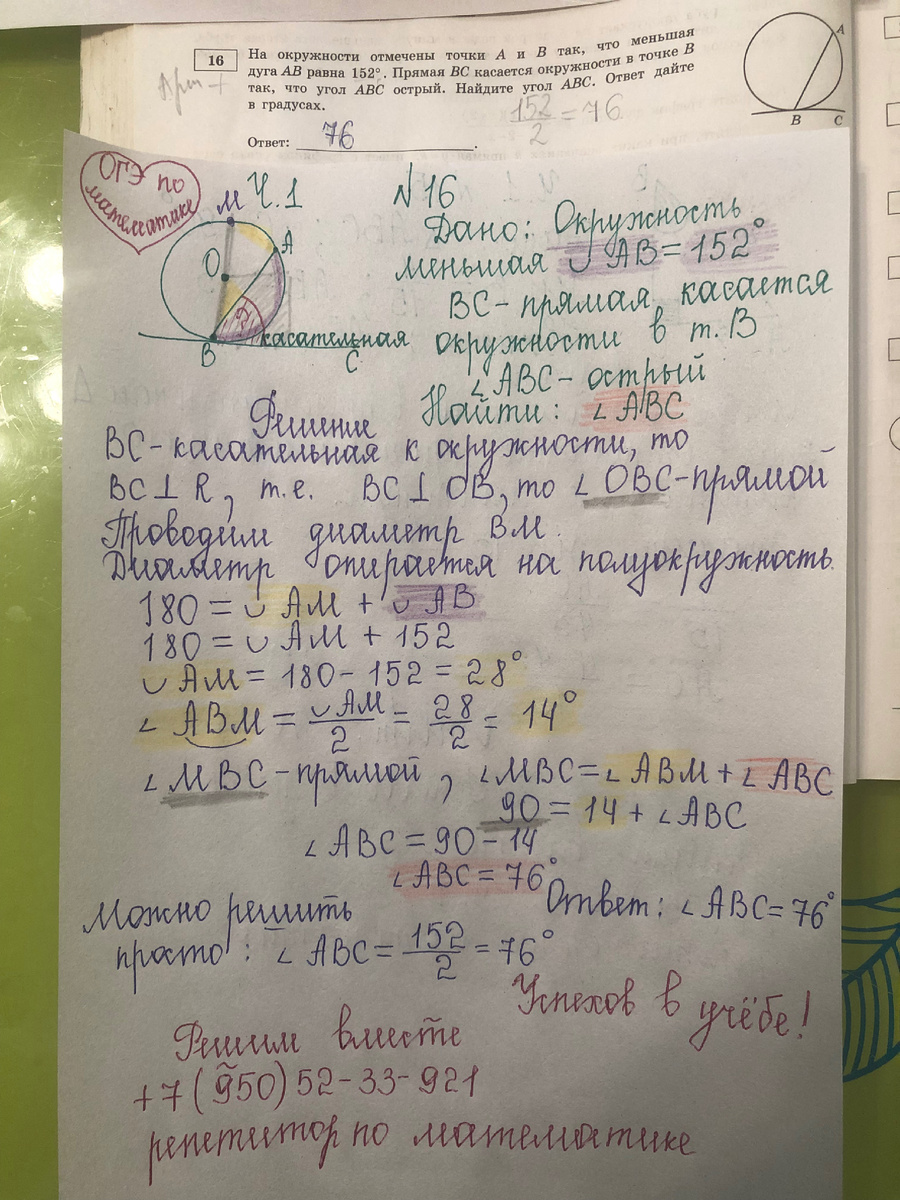 16
На окружности отмечены точки A и B так, что меньшая
дуга AB равна 152°. Прямая BC касается окружности в точке B
так, что угол ABC острый. Найдите угол ABC. Ответ дайте
в градусах.
152/2 = 76
Ответ: 76.
A
B C
ОГЭ по
математике
Ч.1 N16
М
A
O
?
B
касательная
C
Дано: Окружность
меньшая ◡ AB = 152°
BC - прямая, касается
окружности в т. B
∠ABC - острый
Найти: ∠ABC
Решение
BC - касательная к окружности, то
BC ⊥ R, т.е. BC ⊥ OB, то ∠OBC - прямой
Проводим диаметр BM.
Диаметр опирается на полуокружность.
180 = ◡ AM + ◡ AB
180 = ◡ AM + 152
◡ AM = 180 - 152 = 28°
∠ ABM = ◡AM/2 = 28/2 = 14°
∠MBC - прямой, ∠MBC = ∠ABM + ∠ABC
90 = 14 + ∠ABC
∠ABC = 90 - 14
∠ABC = 76°
Ответ: ∠ABC = 76°
Можно решить
просто: ∠ABC = 152/2 = 76°
Успехов в учёбе!
Решим вместе
+7(950)52-33-921
репетитор по математике